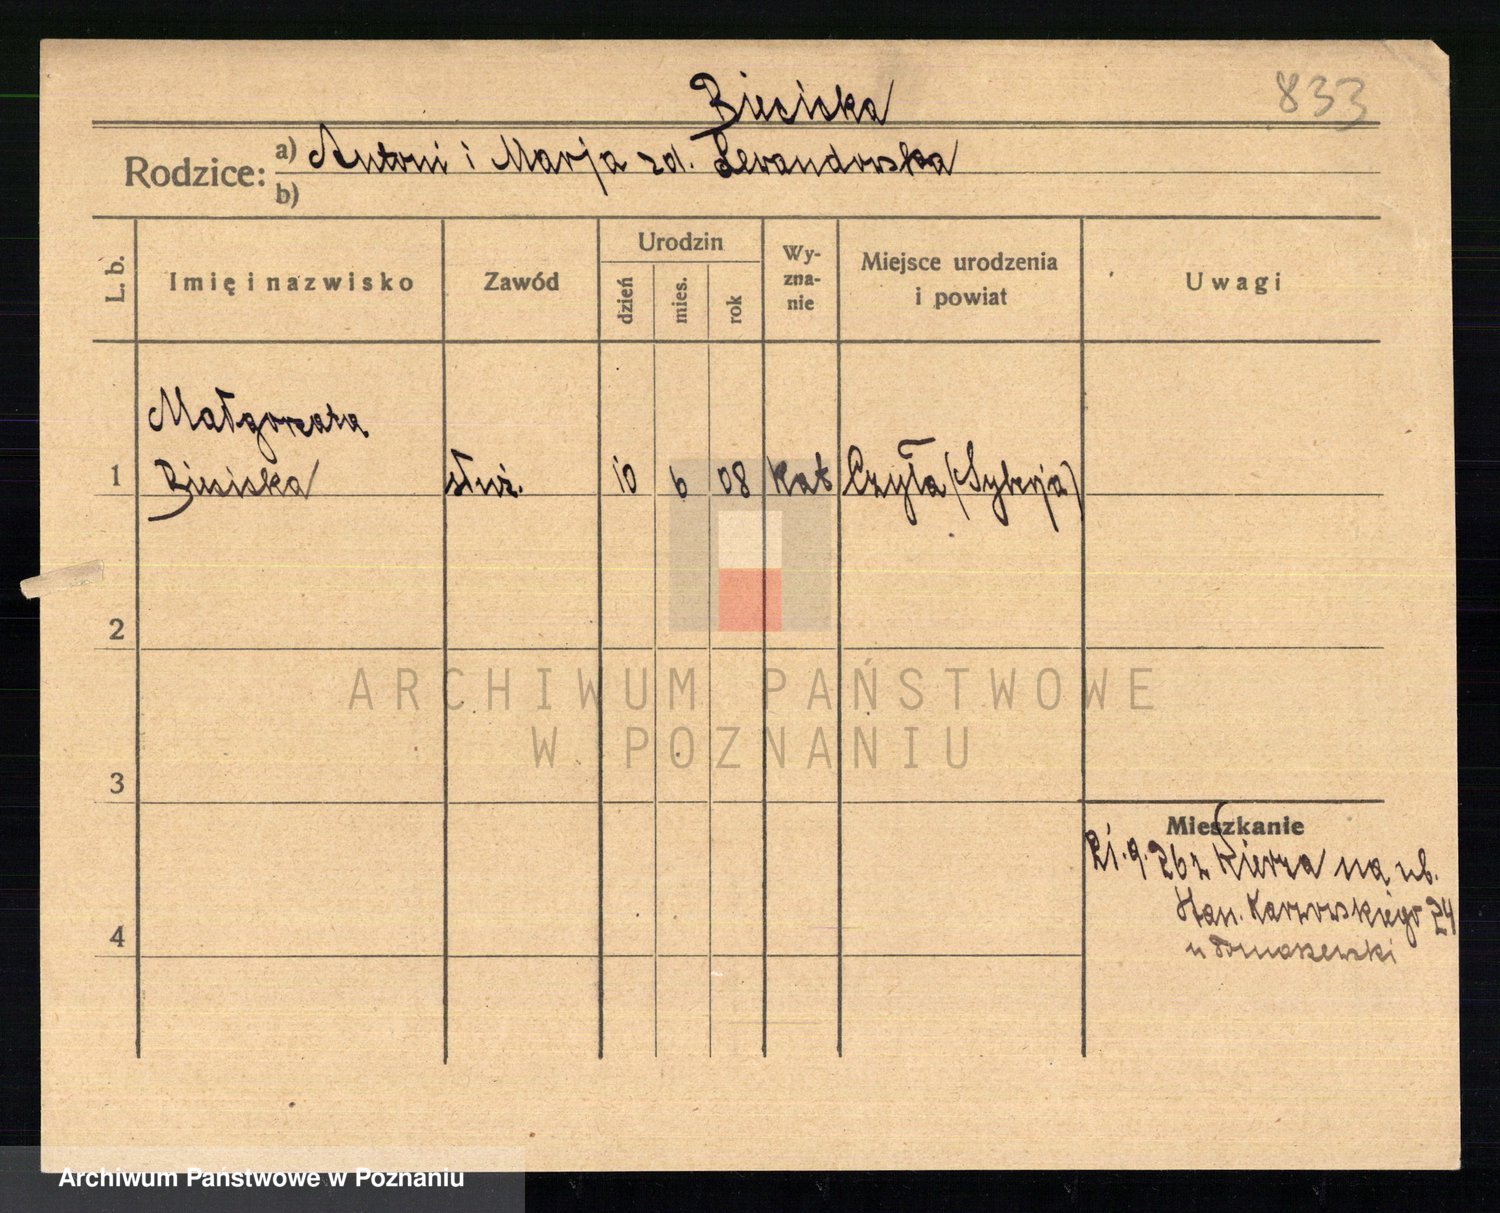 Biesiska
833
Rodzice: a) Antoni i Marja zd. Lewandowska
b)
L. b.
Imię i nazwisko
Zawód
Urodzin
dzień
mies.
rok
Wy-
zna-
nie
Miejsce urodzenia
i powiat
Uwagi
Małgorzata
1 Biesiska służ. 10 6 08 kat Czyta (Syberja)
2
3
4
Mieszkanie
21.9.26 z Kierza na ub.
Han. Karwowskiego 24
u Tomaszewski
ARCHIWUM PAŃSTWOWE
W POZNANIU
Archiwum Państwowe w Poznaniu